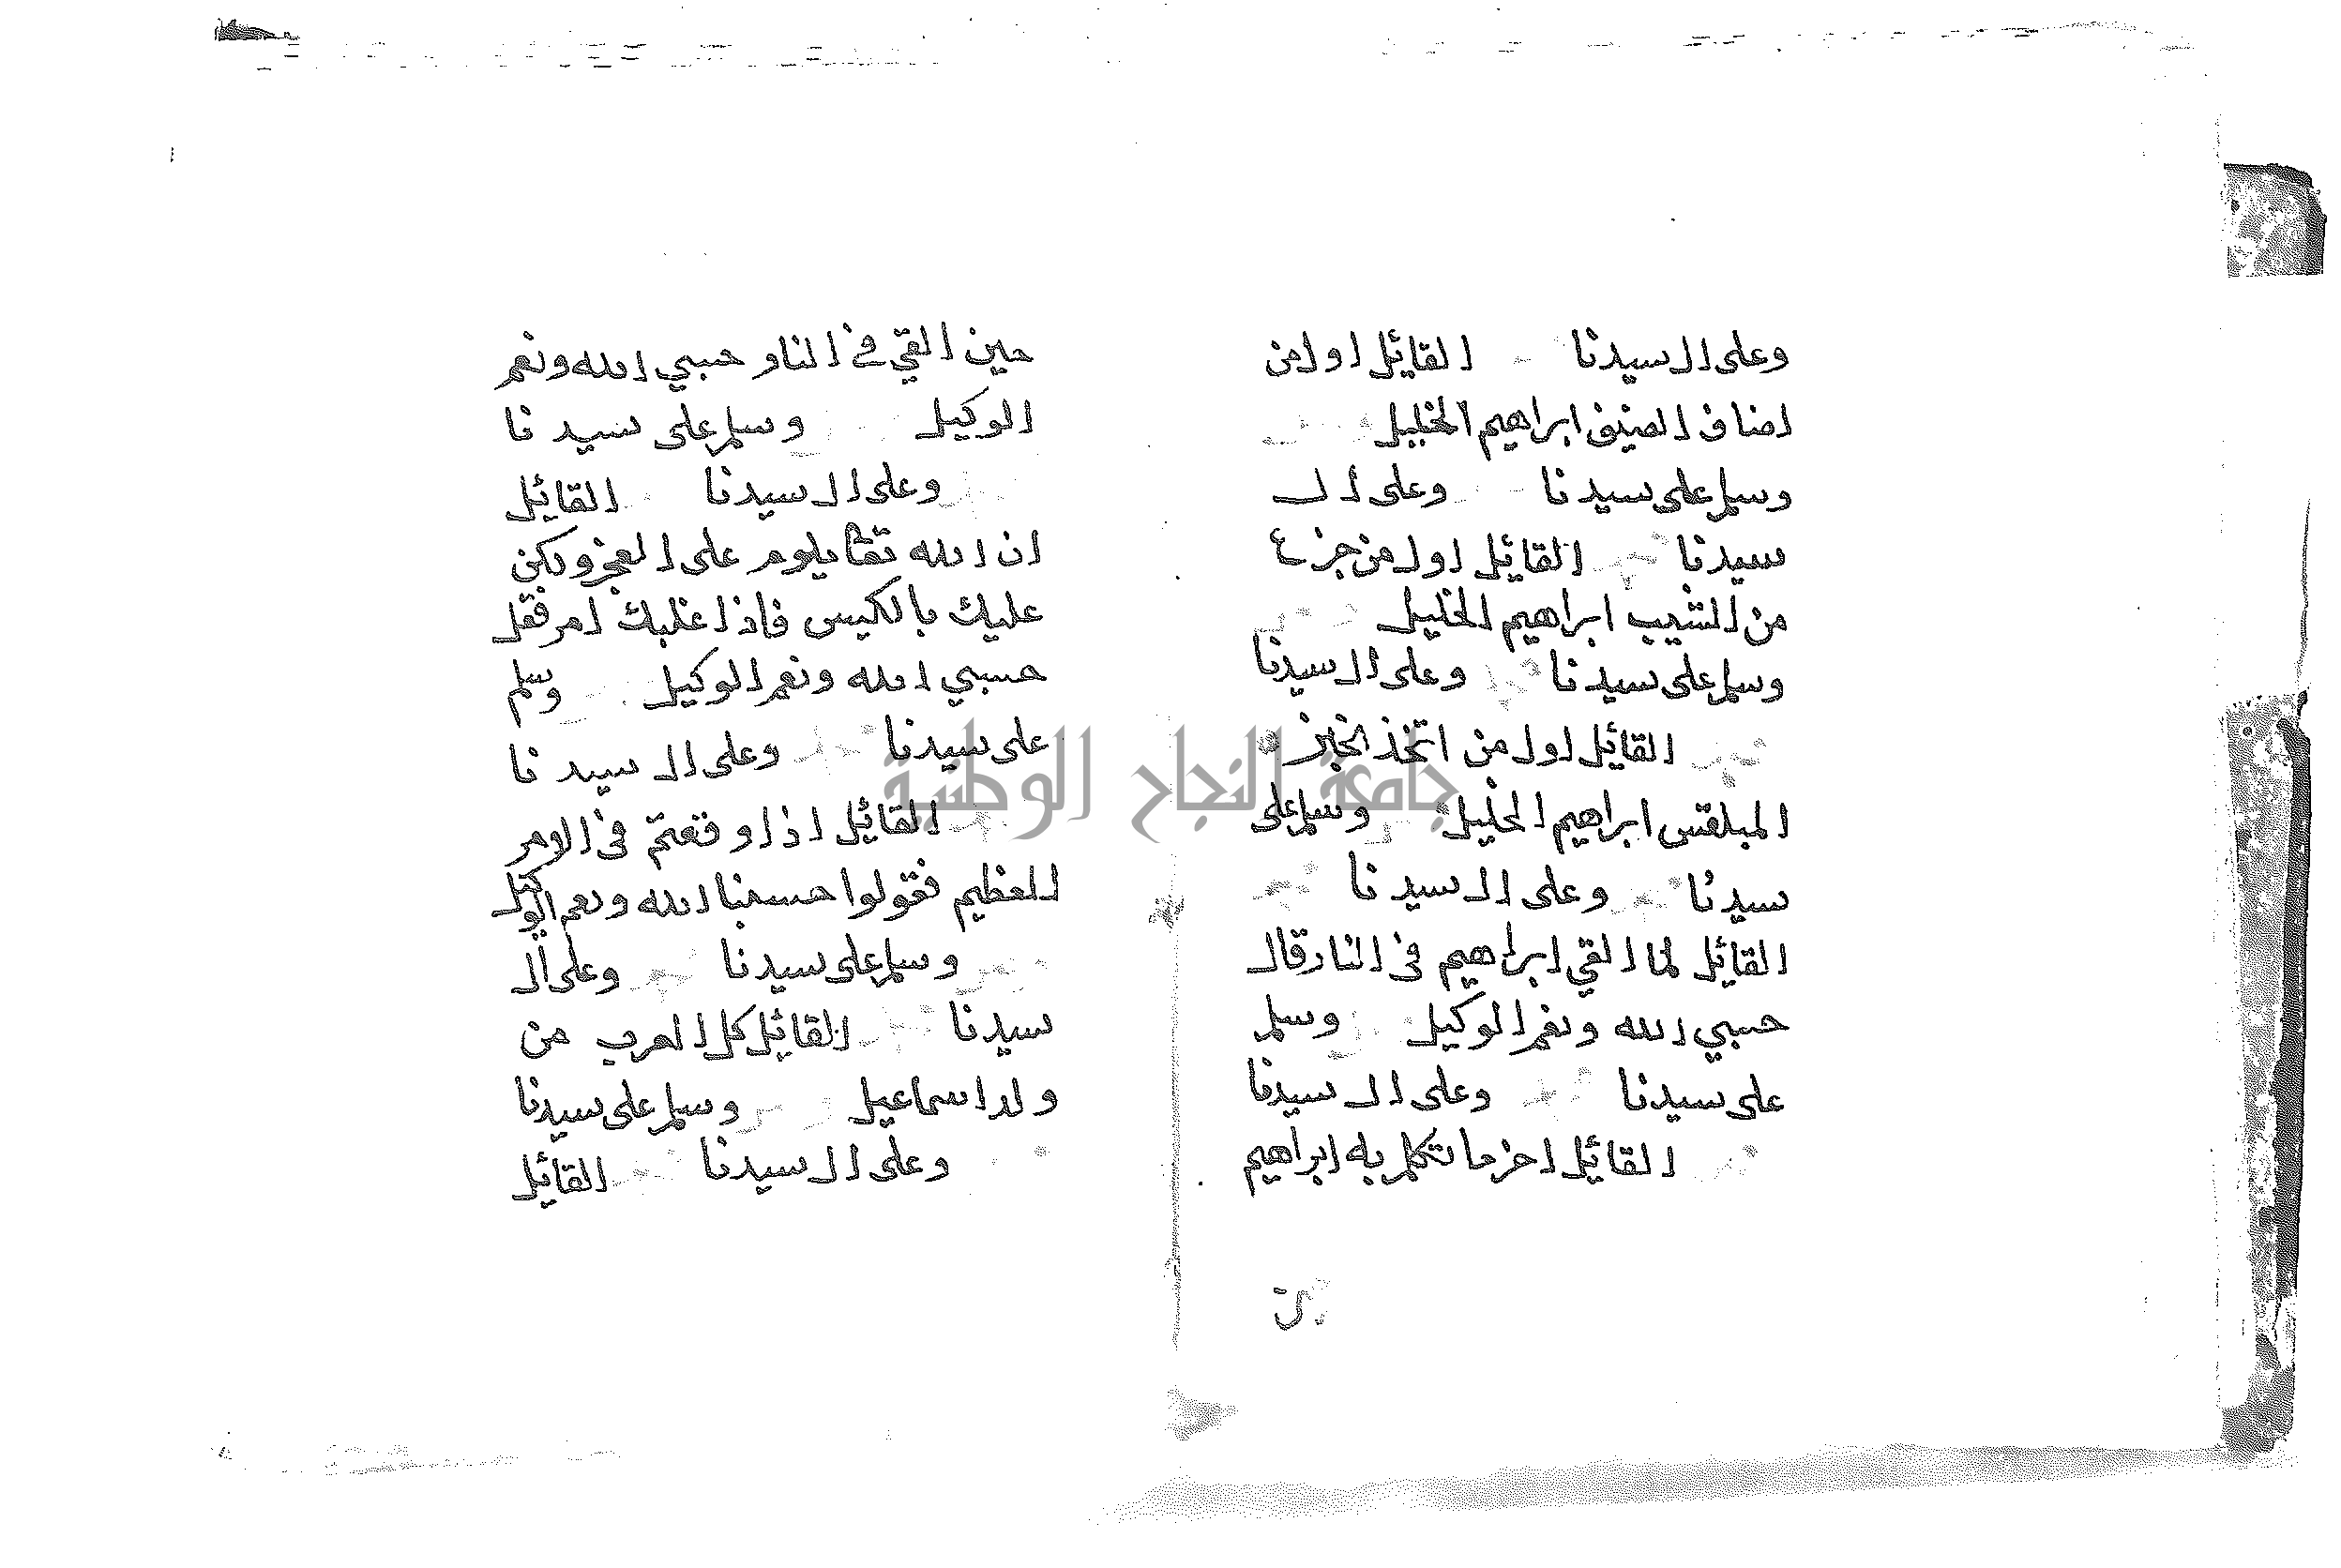 وعلى ال سيدنا القائل اول من
اضاف الضيف ابراهيم الخليل
وسلم على سيدنا وعلى ال
سيدنا القائل اول من جزع
من الشيب ابراهيم الخليل
وسلم على سيدنا وعلى ال سيدنا
القائل اول من اتخذ الخبز
المبلقس ابراهيم الخليل وسلم على
سيدنا وعلى ال سيدنا
القائل لما القي ابراهيم في النار قال
حسبي الله ونعم الوكيل وسلم
على سيدنا وعلى ال سيدنا
القائل اخر ما تكلم به ابراهيم
حين القي في النار حسبي الله ونعم
الوكيل وسلم على سيدنا
وعلى ال سيدنا القائل
ان الله تعا يلوم على العجز ولكن
عليك بالكيس فاذا غلبك امر فقل
حسبي الله ونعم الوكيل وسلم
على سيدنا وعلى ال سيدنا
القائل اذا وقعتم في الامر
العظيم فقولوا حسبنا الله ونعم الوكيل
وسلم على سيدنا وعلى ال
سيدنا القائل كل العرب من
ولد اسماعيل وسلم على سيدنا
وعلى ال سيدنا القائل
جامعة النجاح الوطنية